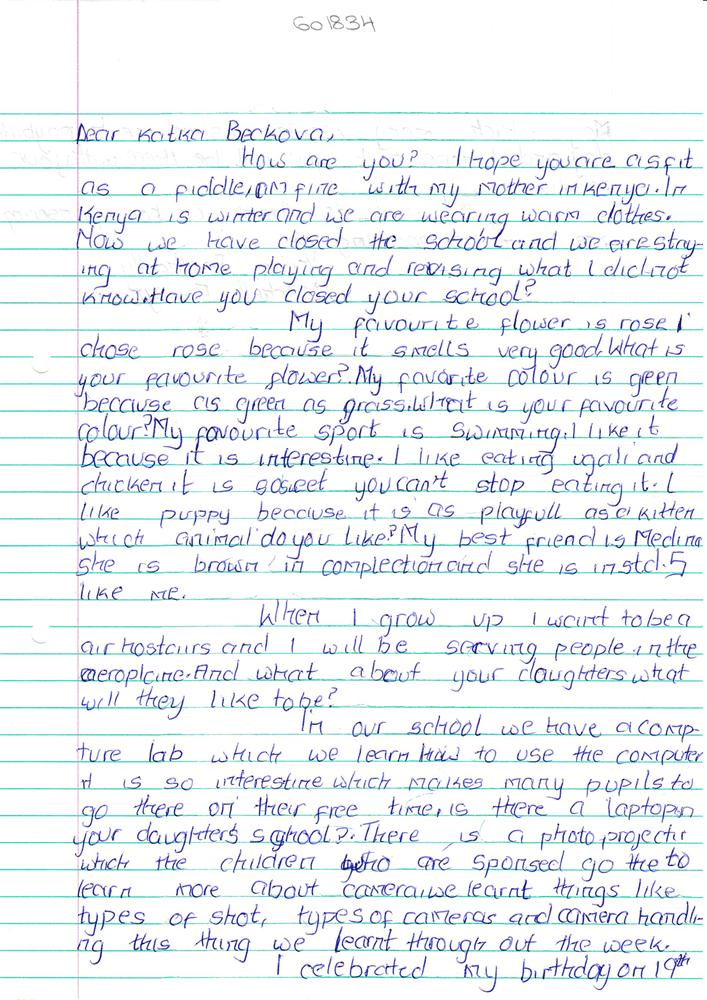 601834
Dear Katka Beckova,
How are you? I hope you are as fit
as a fiddle, am fine with my mother in kenya. In
Kenya is winter and we are wearing warm clothes.
Now we have closed the school and we are stay-
ing at home playing and revising what I did not
know. Have you closed your school?
My favourite flower is rose I
chose rose because it smells very good. What is
your favourite flower?. My favorite colour is geen
because as green as grass. What is your favourite
colour? My favourite sport is swimming. I like it
because it is interestine. I like eating ugali and
chicken it is so sweet you can't stop eating it. I
like puppy because it is as playfull as a kitten
which animal do you like? My best friend is Medina
She is brown in complection and she is in std. 5
like me.
When I grow up I want to be a
air hostairs and I will be serving people in the
aeroplane. And what about your daughters what
will they like to be?
In our school we have a comp-
ture lab which we learn how to use the computer
it is so interestine which makes many pupils to
go there on their free time, is there a laptop in
your daughter's school?. There is a photo projectir
which the children who are sponsed go the to
learn more about camera, we learnt things like
types of shot, types of cameras and camera handli-
ng this thing we learnt through out the week.
I celebrated my birthday on 19th